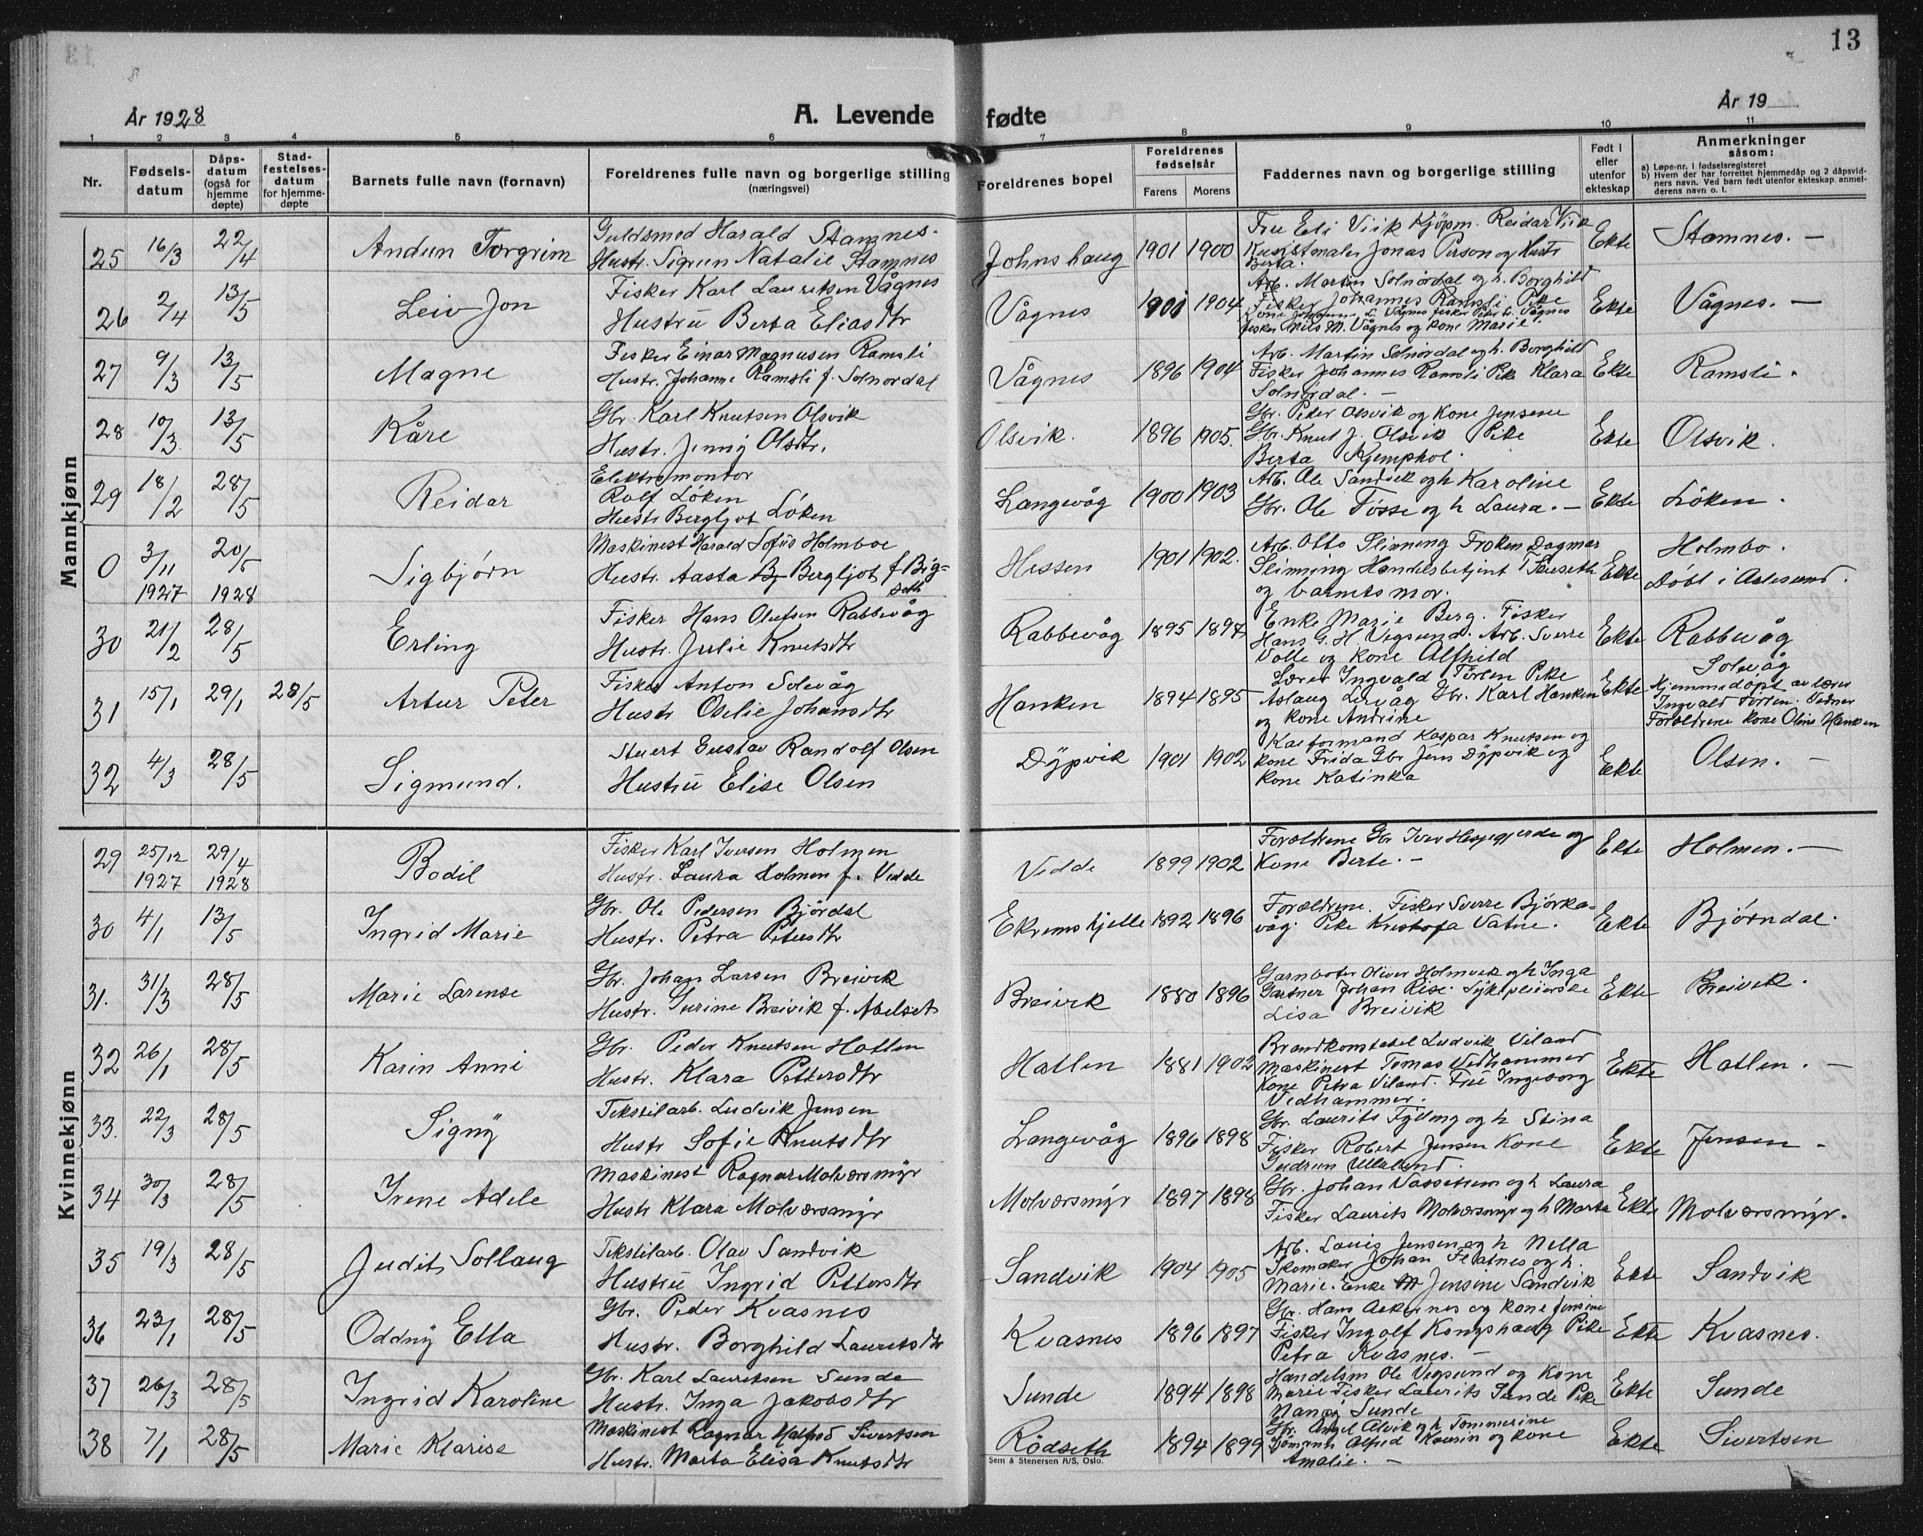 13
År 1928
A. Levende fødte
År 19
1 2 3 4 5 6 7 8 9 10 11
Nr.
Fødsels-
datum
Dåps-
datum
(også for
hjemme
døpte)
Stad-
festelses-
datum
for hjemme-
døpte
Barnets fulle navn (fornavn)
Foreldrenes fulle navn og borgerlige stilling
(næringsvei)
Foreldrenes bopel
Foreldrenes
fødselsår
Farens Morens
Faddernes navn og borgerlige stilling
Født i
eller
utenfor
ekteskap
Anmerkninger
såsom:
a) Løpe-nr. i fødselsregisteret
b) Hvem der har forrettet hjemmedåp og 2 dåpsvid-
ners navn. Ved barn født utenfor ekteskap anmel-
derens navn o. l.
Mannkjønn
25 16/3 22/4 Andun Torgrim
Guldsmed Harald Stamnes.
Hustr. Sigrun Natalie Stamnes
Johnshaug 1901 1900
Fru Eli Viik Kjøpm. Reidar Viik
Kunstmaler Jonas Person og Hust
Berta.
Ekte Stamnes. —
26 2/4 13/5 Leiv Jon
Fisker Karl Lauritsen Vågnes
Hustru Berta Eliasdtr
Vågnes 1901 1904
Arb. Martin Solnørdal og h. Borghild
Fisker Johannes Ramsli Pike
fisker Nils M. Vågnes og kone Marie.
Ekte Vågnes. —
27 9/3 13/5 Magne
Fisker Einar Magnusen Ramsli
Hustr. Johanne Ramsli f. Solnordal
Vågnes 1896 1904
Arb. Martin Solnørdal og h. Borghild
Fisker Johannes Ramsli Pike Klara
Solnørdal. —
Ekte Ramsli.
28 10/3 13/5 Kåre
Gbr. Karl Knutsen Olsvik
Hustr. Jenny Olsdtr.
Olsvik. 1896 1905.
Gbr. Peder Olsvik og Kone Jensine
Gbr. Knut J. Olsvik Pike
Berta Kjemphol.
Ekte Olsvik.
29 18/2 28/5 Reidar
Elektromontør
Rolf Löken
Hustr Bergljot Löken
Langevåg 1900 1903
Arb. Ole Sandvik og h Karoline
Gbr. Ole Fosse og h Laura. —
Ekte Löken.
0 3/11 20/5 Sigbjørn
1927 1928
Maskinest Harald Sofus Holmboe
Hustr. Aasta Bergljot f Big-
seth
Hessen 1901 1902.
Arb. Otto Slinning Frøken Dagmar
Slinning Handelsbetjent T Fauseth
og barnets mor.
Ekte Holmbo.
Döbt i Aalesund.
30 21/2 28/5 Erling
Fisker Hans Olufsen Rabbevåg
Hustr. Julie Knutsdtr
Rabbevåg 1895 1897
Enke Marie Berg. Fisker
Hans G. H Vegsund. Arb. Sverre
Volle og kone Alfhild
Ekte Rabbevåg
31 15/1 29/1 28/5 Artur Peter
Fisker Anton Solevåg
Hustr Otelie Johansdtr
Hanken 1894 1895
Lærer Ingvald Törlen Pike
Aslaug Lervåg Gbr. Karl Hanken
og kone Andrine
Ekte Solevåg
Hjemmedöpt av lærer
Ingvald Törlen. Vidner
Foreldrene kone Oline Hanken
32 4/3 28/5 Sigmund.
Stuert Gustav Randolf Olsen
Hustru Elise Olsen
Dÿpvik 1901 1902
Kaiformand Kaspar Knutsen og
kone Frida Gbr Jens Dÿpvik og
kone Katinka
Ekte Olsen. —
Kvinnekjønn
29 25/12 29/4 Bodil
1927 1928
Fisker Karl Iversen Holmen
Hustr. Laura Holmen f. Vedde
Vedde 1899 1902
Foreldrene Gbr Iver Hessgjerde og
Kone Berte. —
Ekte Holmen. —
30 4/1 13/5 Ingrid Marie
Gbr. Ole Pedersen Björdal
Hustr. Petra Petersdtr
Ekremshjelle 1892 1896
Foreldrene. Fisker Sverre Bjørka-
våg. Pike Kristofa Vatne.
Ekte Bjørndal.
31. 31/3 28/5 Marie Larense
Gbr. Johan Larsen Breivik
Hustr. Surine Breivik f. Abelset
Breivik 1880 1896
Garnbøter Oliver Holmvik og h Inga
Gartner Johan Rise. Sykepleierske
Lisa Breivik
Ekte Breivik.
32 26/1 28/5 Karin Anni
Gbr. Peder Knutsen Hatlen
Hustr. Klara Pettersdtr
Hatlen 1881 1902
Brandkonstabel Ludvik Viland
Maskinest Tomas Vedhammer
Kone Petra Viland. Fru Ingeborg
Vedhammer.
Ekte Hatlen. —
33. 22/3 28/5 Signÿ
Tekstilarb. Ludvik Jensen
Hustr Sofie Knutsdtr
Langevåg 1896 1898
Gbr. Laurits Fylling og h Stina
Fisker Robert Jensen Kone
Gudrun Ullalund.
Ekte Jensen —
34 30/3 28/5 Irene Adele
Maskinest Ragnar Molværsmÿr
Hustr Klara Molværsmÿr
Molværsmÿr 1897 1898
Gbr. Johan Vassetrem og h Laura
Fisker Laurits Molværsmÿr og h Marta
Ekte Molværsmÿr.
35 19/3 28/5 Judit Sollaug
Tekstilarb. Olav Sandvik
Hustru Ingrid Pettersdtr
Sandvik 1904 1905
Arb. Louis Jensen og h Nella
Skomaker Johan Flatnes og h.
Marie. Enke Jensene Sandvik
Ekte Sandvik
36 23/1 28/5 Oddnÿ Ella
Gbr. Peder Kvasnes
Hustr. Borghild Lauritsdtr
Kvasnes 1896 1897
Gbr. Hans Aakernes og kone Jensine
Fisker Ingolf Kongshaug Pike
Petra Kvasnes. —
Ekte Kvasnes.
37 26/3 28/5 Ingrid Karoline
Gbr. Karl Lauritsen Sunde
Hustr. Inga Jakobsdtr
Sunde 1894 1898
Handelsm Ole Vegsund og Kone
Marie Fisker Laurits Sunde Pike
Nanny Sunde
Ekte Sunde
38 7/1 28/5 Marie Klarise
Maskinest Ragnar Halfred Sivertsen
Hustr. Marta Elisa Knutsdtr
Rödseth 1894 1899
Gbr. Angel Alvik og h Tommerine
Alfred Kaurin og kone
Amalie. —
Ekte Sivertsen
Sem & Stenersen A/S, Oslo.